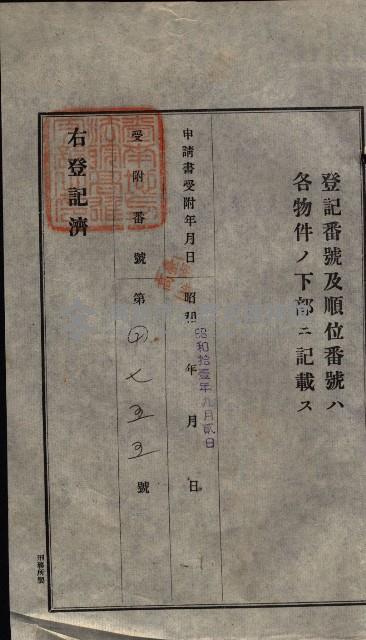 登記番號及順位番號ハ
各物件ノ下部ニ記載ス
申請書受附年月日
昭和 年 月 日
昭和拾壹年九月貳日
受附番號 第 七五五 號
右登記濟
刑務所製